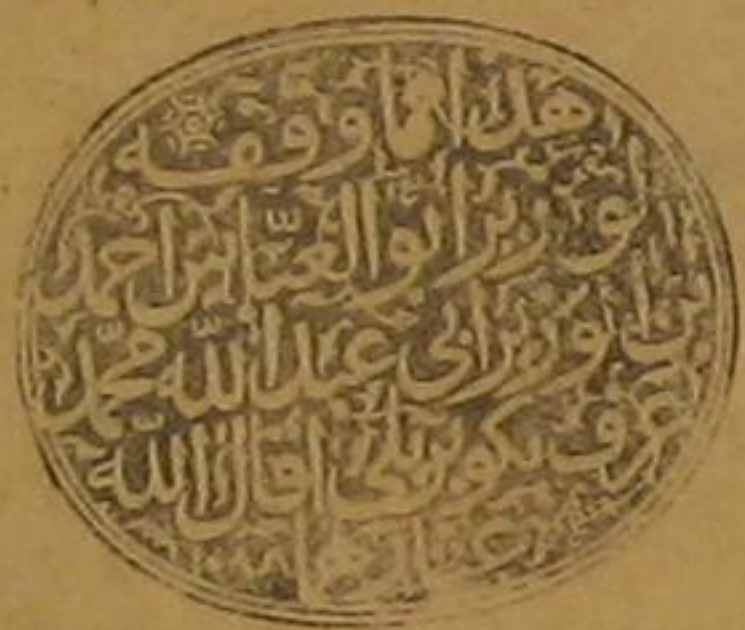 هذا مما وقفه
الوزير ابو العبّاس احمد
بن الوزير ابي عبد اللّه محمّد
عرف بكوبريلي اقال اللّه
عثارهما